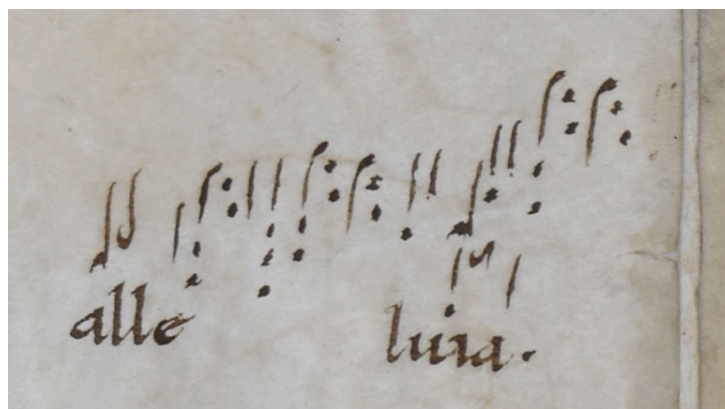 alle luia.